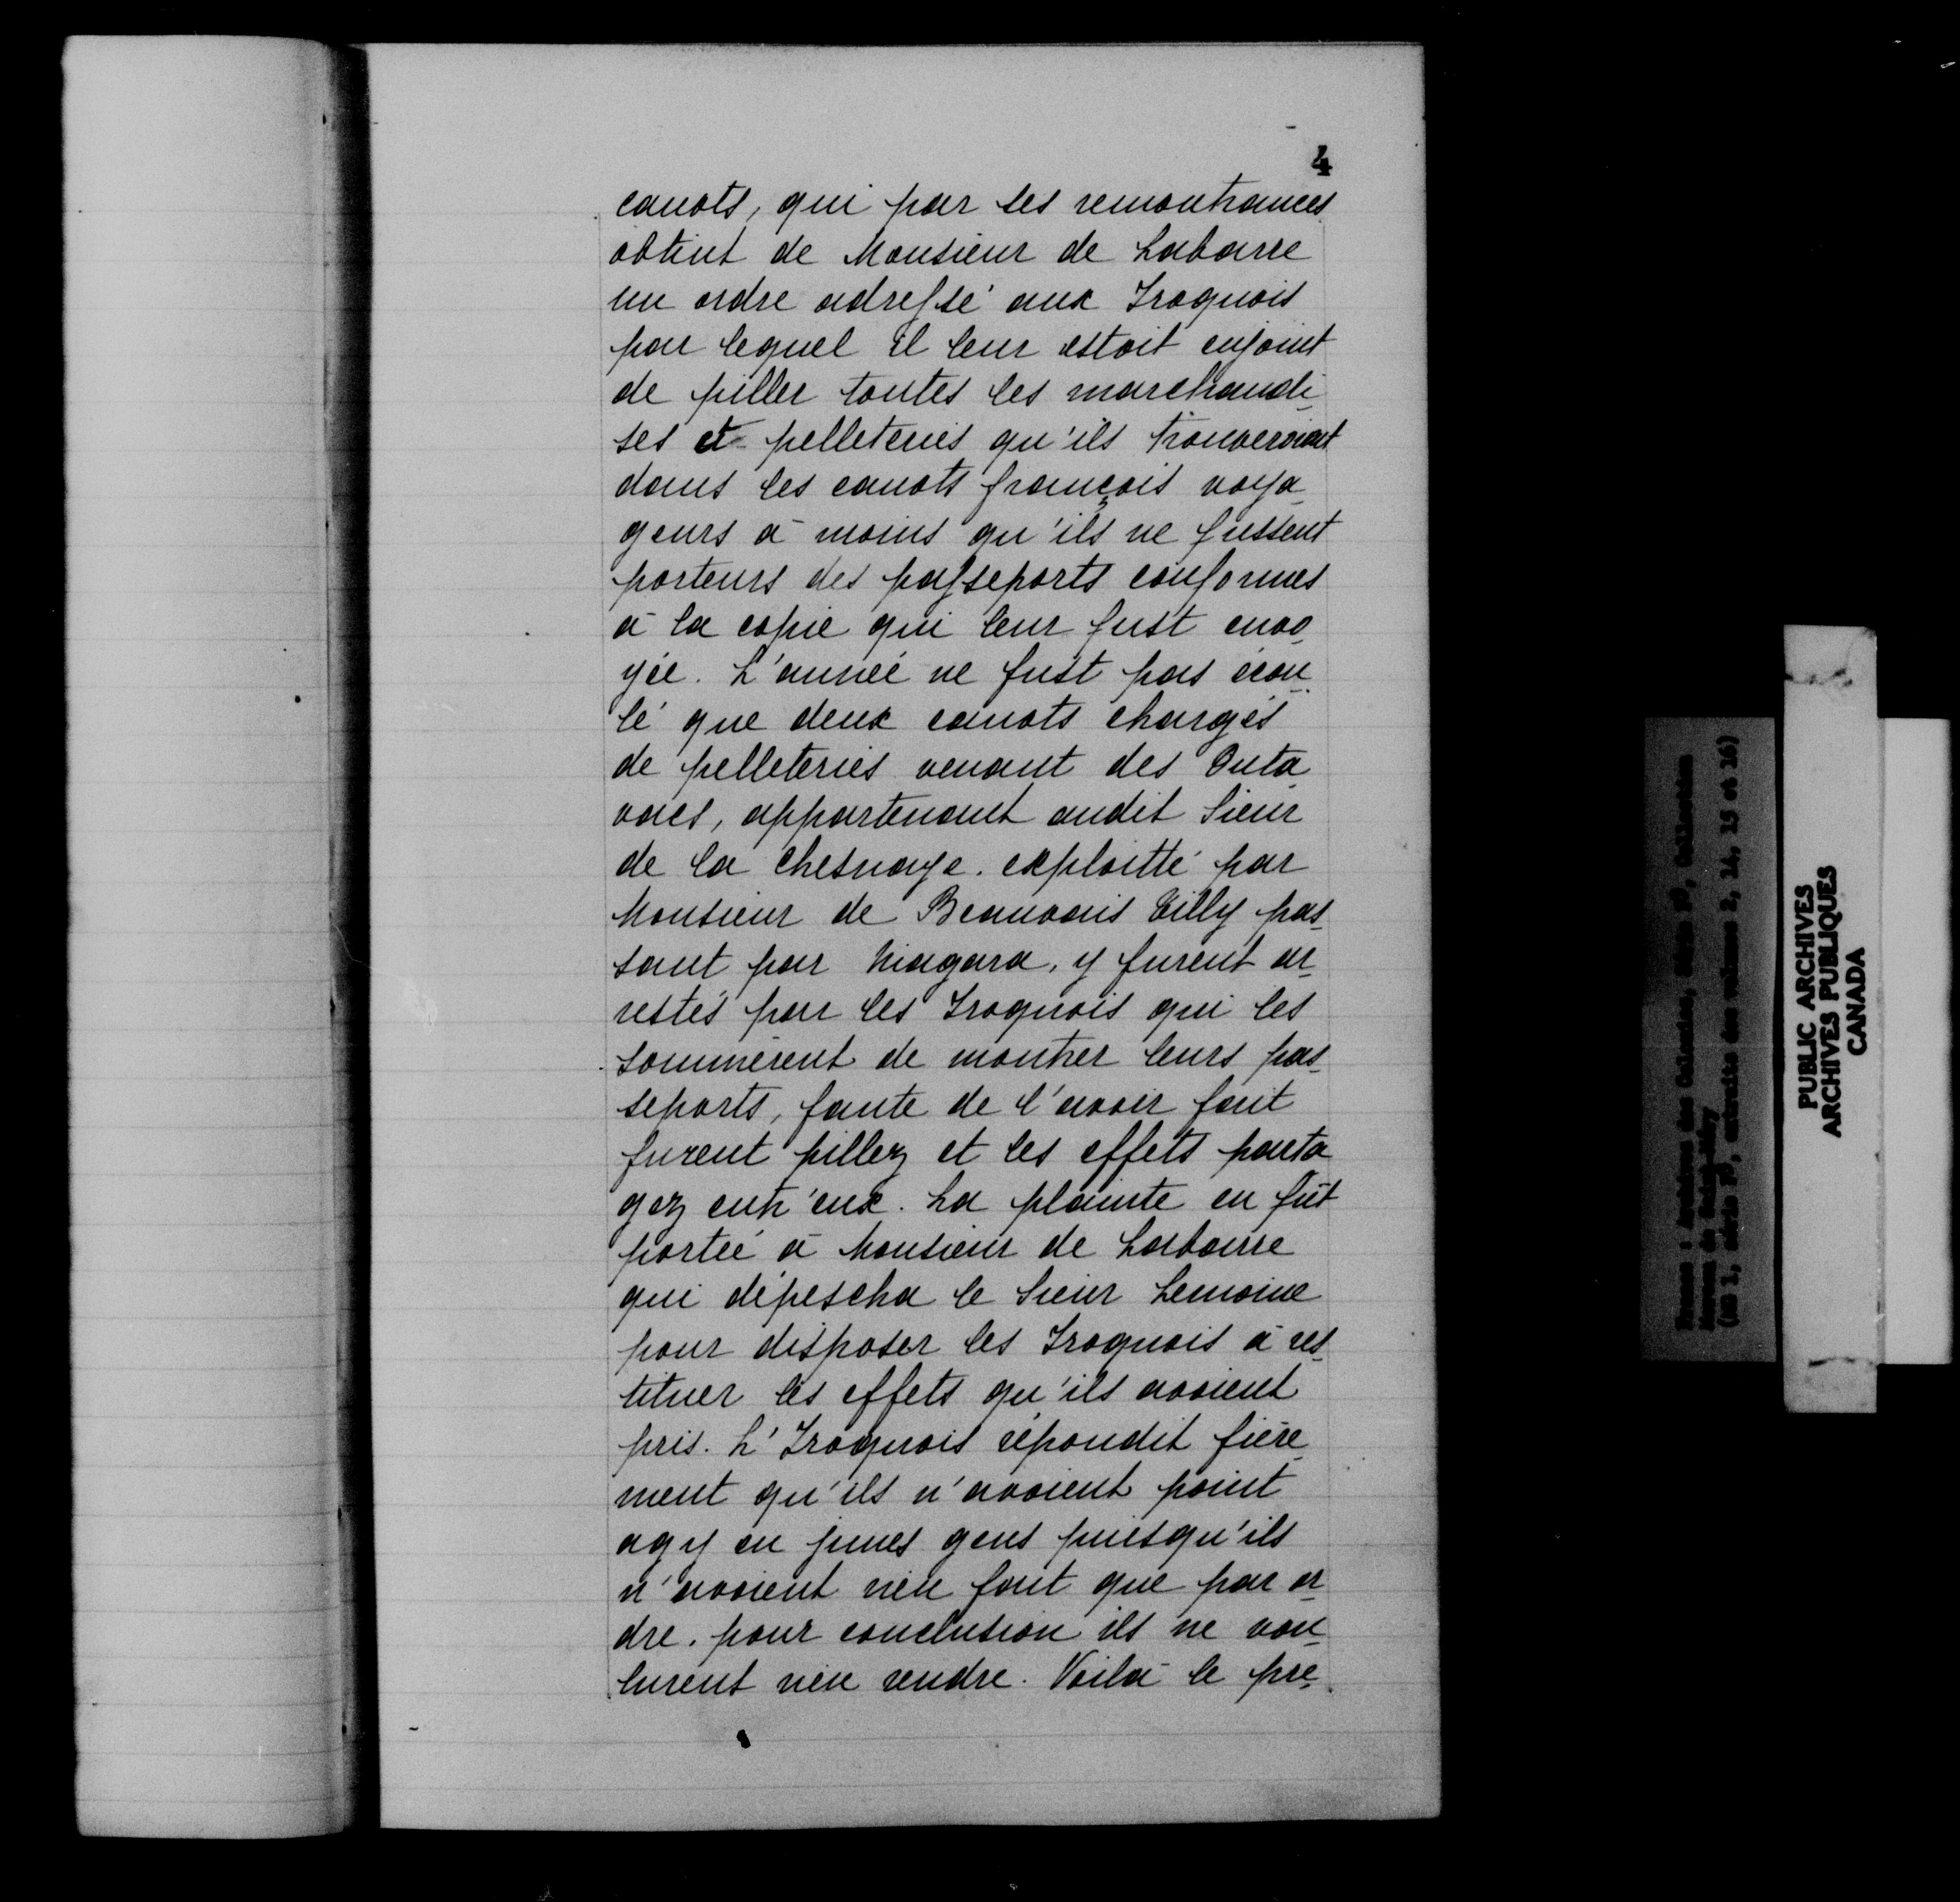 4
canots, qui par ses remontrances
obtint de Monsieur de Labarre
un ordre adressé aux Iroquois
par lequel il leur estoit enjoint
de piller toutes les marchandi-
ses et pelleteries qu'ils trouveroient
dans les canots françois voya-
geurs à moins qu'ils ne fussent
porteurs des passeports conformes
à la copie qui leur fust envo-
yée. L'année ne fust pas écou-
lé que deux canots chargés
de pelleteries venant des Outa-
vacs, appartenant audit Sieur
de la Chesnaye. exploitté par
Monsieur de Beauvais Tilly pas-
sant par Niagara, y furent ar-
restés par les Iroquois qui les
sommèrent de montrer leurs pas-
seports, faute de l'avoir fait
furent pillez et les effets parta
gez entr'eux. La plainte en fût
portée à Monsieur de Labarre
qui dépescha le Sieur Lemoine
pour disposer les Iroquois à res-
tituer les effets qu'ils avoient
pris. L'Iroquois répondit fière-
ment qu'ils n'avoient point
agy en junes gens puisqu'ils
n'avoient rien fait que par or-
dre. pour conclusion ils ne vou-
lurent rien rendre. Voilà le pre-
PUBLIC ARCHIVES
ARCHIVES PUBLIQUES
CANADA
France : Archives des Colonies, Série F3, Collection
Moreau de Saint-Méry
(MG 1, série F3, extraits des volumes 2, 24, 25 et 26)